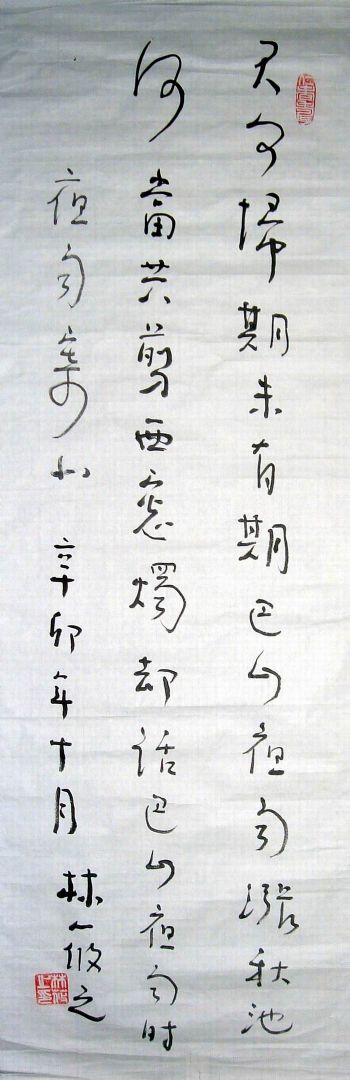 君问歸期未有期巴山夜雨漲秋池
何當共剪西窓燭却話巴山夜雨时
夜雨寄北 辛卯年十月 林筱之